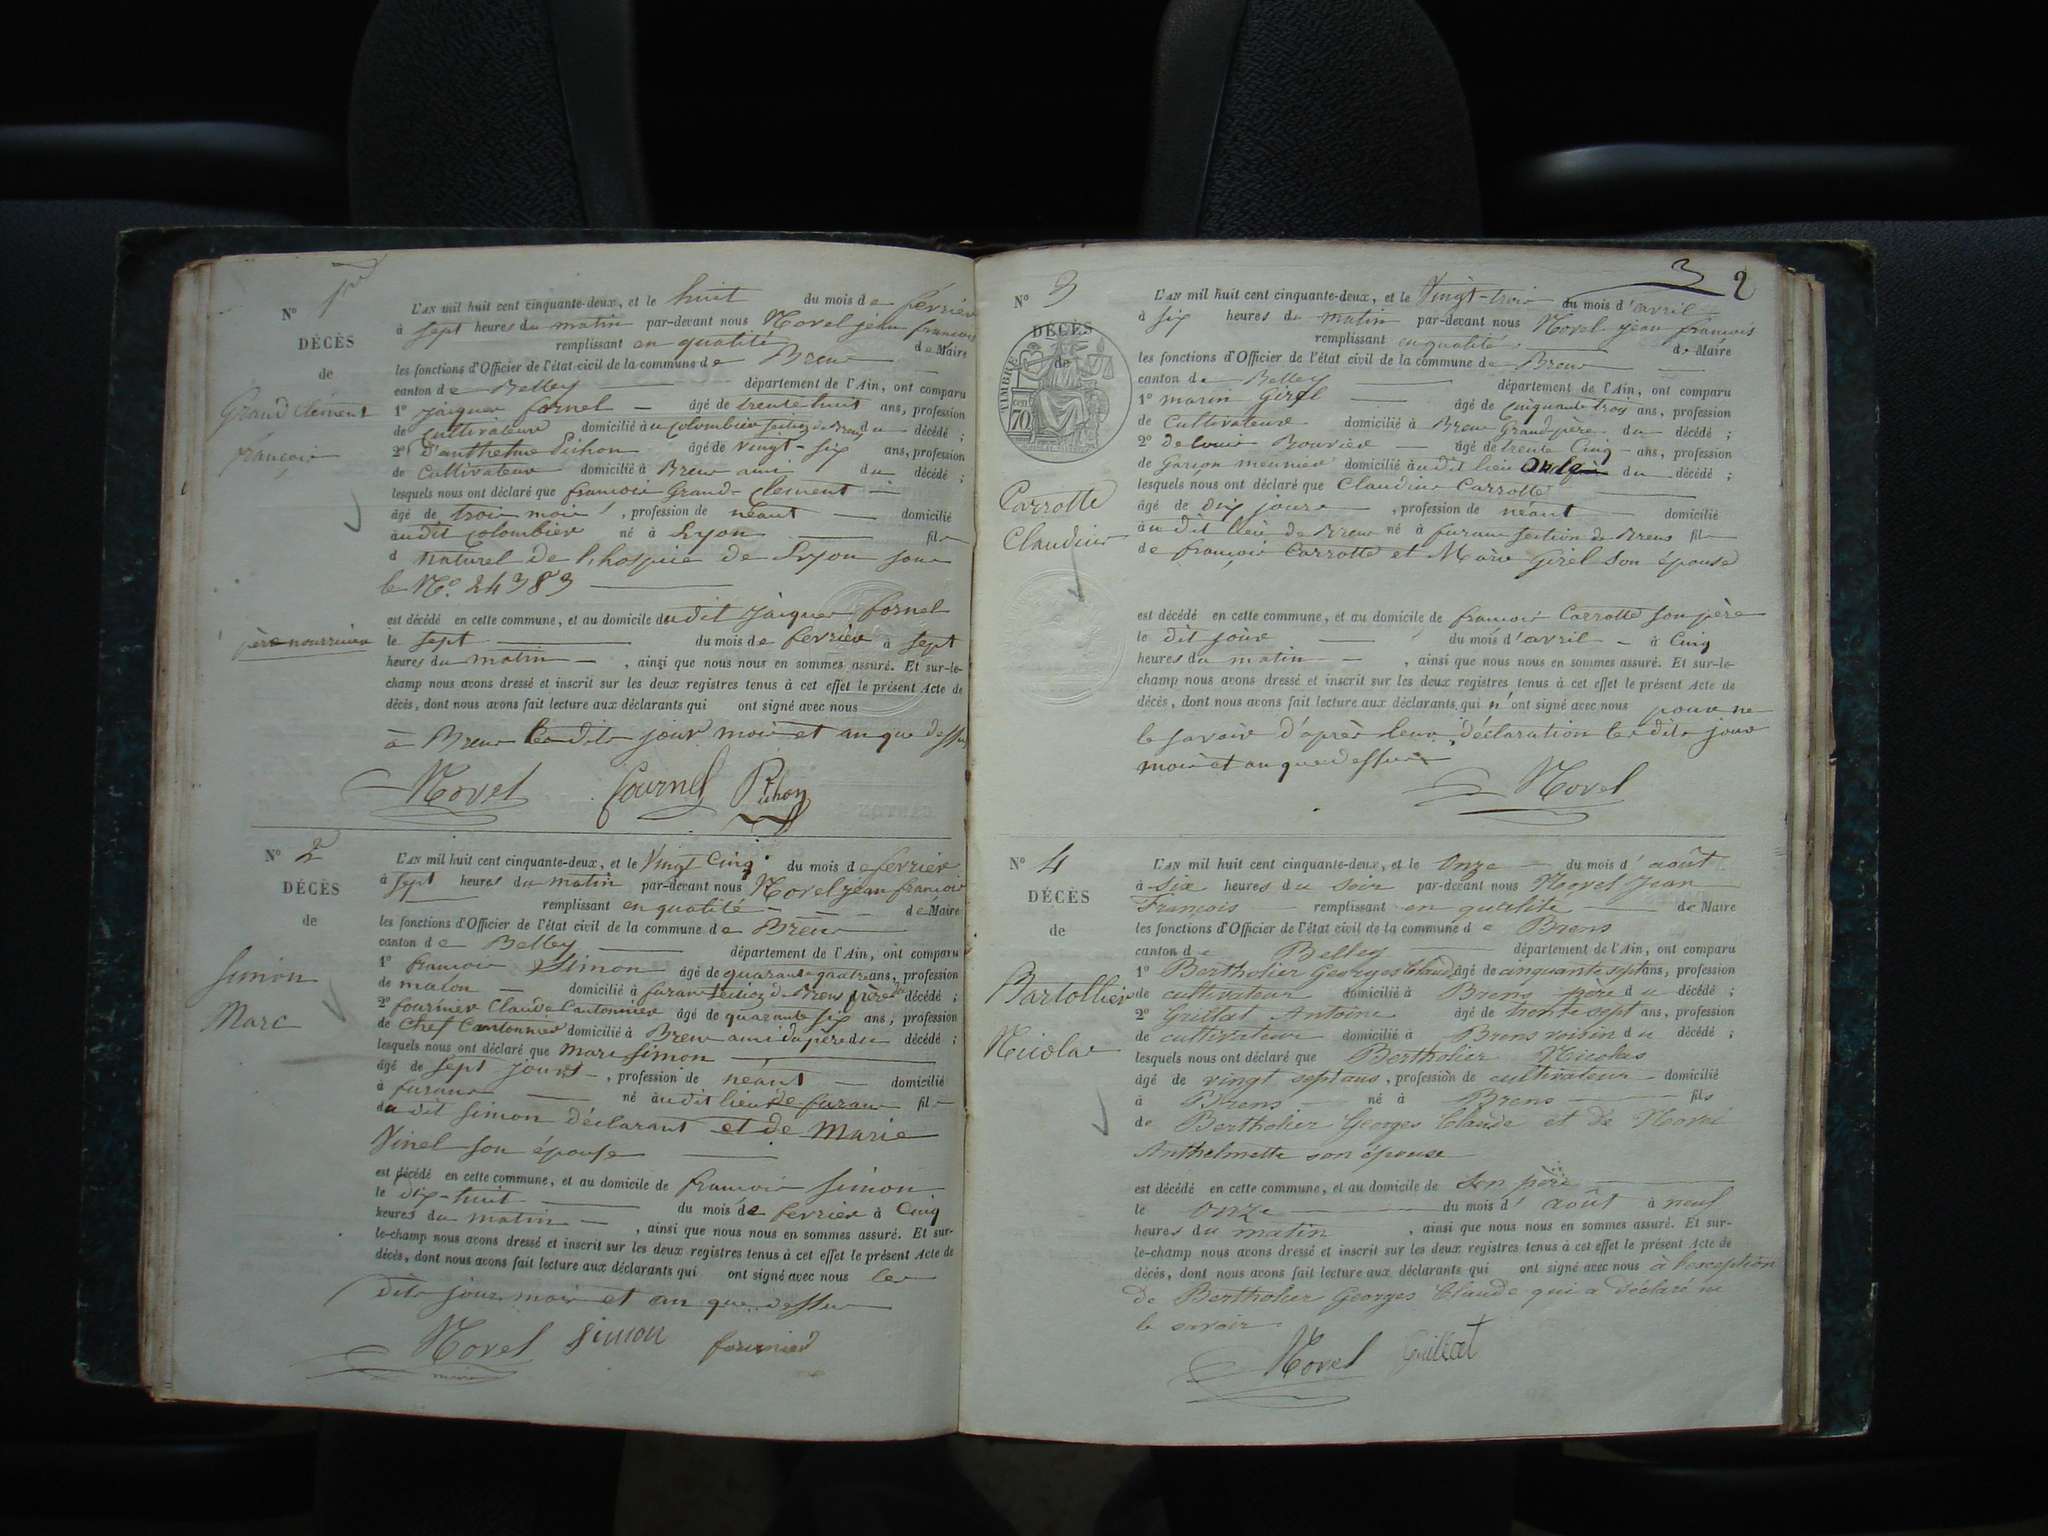 N° 1er
DÉCÈS
de
Grand Clément
françois
père nourricier
L'AN mil huit cent cinquante-deux, et le huit du mois de février
à sept heures du matin par-devant nous Novel jean françois
remplissant en qualité de Maire
les fonctions d'Officier de l'état civil de la commune de Brens
canton de Belley département de l'Ain, ont comparu
1° jacques fornel âgé de trente huit ans, profession
de cultivateur domicilié à colombier section de Brens du décédé ;
2° d'anthelme Pichon âgé de vingt-six ans, profession
de cultivateur domicilié à Brens ami du décédé ;
lesquels nous ont déclaré que françois Grand-Clement
âgé de trois mois, profession de néant domicilié
audit colombier né à Lyon fils
d naturel de l'hospice de Lyon sous
le N° 24383
est décédé en cette commune, et au domicile dudit jacques fornel
le sept du mois de février à sept
heures du matin, ainsi que nous nous en sommes assuré. Et sur-le-
champ nous avons dressé et inscrit sur les deux registres tenus à cet effet le présent Acte de
décès, dont nous avons fait lecture aux déclarants qui ont signé avec nous
à Brens les dits jour mois et an que dessus
Novel fournel Pichon
N° 2
DÉCÈS
de
Simon
Marc
L'AN mil huit cent cinquante-deux, et le Vingt Cinq du mois de fevrier
à sept heures du matin par-devant nous Novel jean françois
remplissant en qualité de Maire
les fonctions d'Officier de l'état civil de la commune de Brens
canton de Belley département de l'Ain, ont comparu
1° françois Simon âgé de quarante quatre ans, profession
de maçon domicilié à furans section de Brens père du décédé ;
2° fournier Claude Cantonnier âgé de quarante six ans, profession
de Chef Cantonnier domicilié à Brens ami du père du décédé ;
lesquels nous ont déclaré que Marc Simon
âgé de sept jours, profession de néant domicilié
à furans né audit lieu de furans fils
du dit Simon déclarant et de Marie
Vinel son épouse
est décédé en cette commune, et au domicile de françois Simon
le dix-huit du mois de fevrier à Cinq
heures du matin, ainsi que nous nous en sommes assuré. Et sur-
le-champ nous avons dressé et inscrit sur les deux registres tenus à cet effet le présent Acte de
décès, dont nous avons fait lecture aux déclarants qui ont signé avec nous les
dits jour mois et an que dessus
Novel Simon fournier
maire
3 2
N° 3
DÉCÈS
de
TIMBRE
70
Carrotte
Claudius
L'AN mil huit cent cinquante-deux, et le Vingt-trois du mois d'avril
à six heures du matin par-devant nous Novel jean françois
remplissant en qualité de Maire
les fonctions d'Officier de l'état civil de la commune de Brens
canton de Belley département de l'Ain, ont comparu
1° marin Girel âgé de cinquante trois ans, profession
de Cultivateur domicilié à Brens Grand-père du décédé ;
2° de louis Bouvier âgé de trente Cinq ans, profession
de Garçon meunier domicilié audit lieu oncle du décédé ;
lesquels nous ont déclaré que Claudius Carrotte
âgé de dix jours, profession de néant domicilié
au dit lieu de Brens né à furans section de Brens fils
de françois Carrotte et Marie Girel son épouse
est décédé en cette commune, et au domicile de françois Carrotte son père
le dit jour du mois d'avril à Cinq
heures du matin, ainsi que nous nous en sommes assuré. Et sur-le-
champ nous avons dressé et inscrit sur les deux registres tenus à cet effet le présent Acte de
décès, dont nous avons fait lecture aux déclarants qui n'ont signé avec nous pour ne
le savoir d'après leur déclaration les dits jour
mois et an que dessus
Novel
N° 4
DÉCÈS
de
Bartollier
Nicolas
L'AN mil huit cent cinquante-deux, et le Onze du mois d'août
à six heures du soir par-devant nous Novel Jean
François remplissant en qualité de Maire
les fonctions d'Officier de l'état civil de la commune de Brens
canton de Belley département de l'Ain, ont comparu
1° Bertholier Georges Claude âgé de cinquante sept ans, profession
de cultivateur domicilié à Brens père du décédé ;
2° Grillat Antoine âgé de trente sept ans, profession
de cultivateur domicilié à Brens voisin du décédé ;
lesquels nous ont déclaré que Bertholier Nicolas
âgé de vingt sept ans, profession de cultivateur domicilié
à Brens né à Brens fils
de Bertholier Georges Claude et de Novel
Anthelmette son épouse
est décédé en cette commune, et au domicile de son père
le onze du mois d'août à neuf
heures du matin, ainsi que nous nous en sommes assuré. Et sur-
le-champ nous avons dressé et inscrit sur les deux registres tenus à cet effet le présent Acte de
décès, dont nous avons fait lecture aux déclarants qui ont signé avec nous à l'exception
de Bertholier Georges Claude qui a déclaré ne
le savoir
Novel Grillat